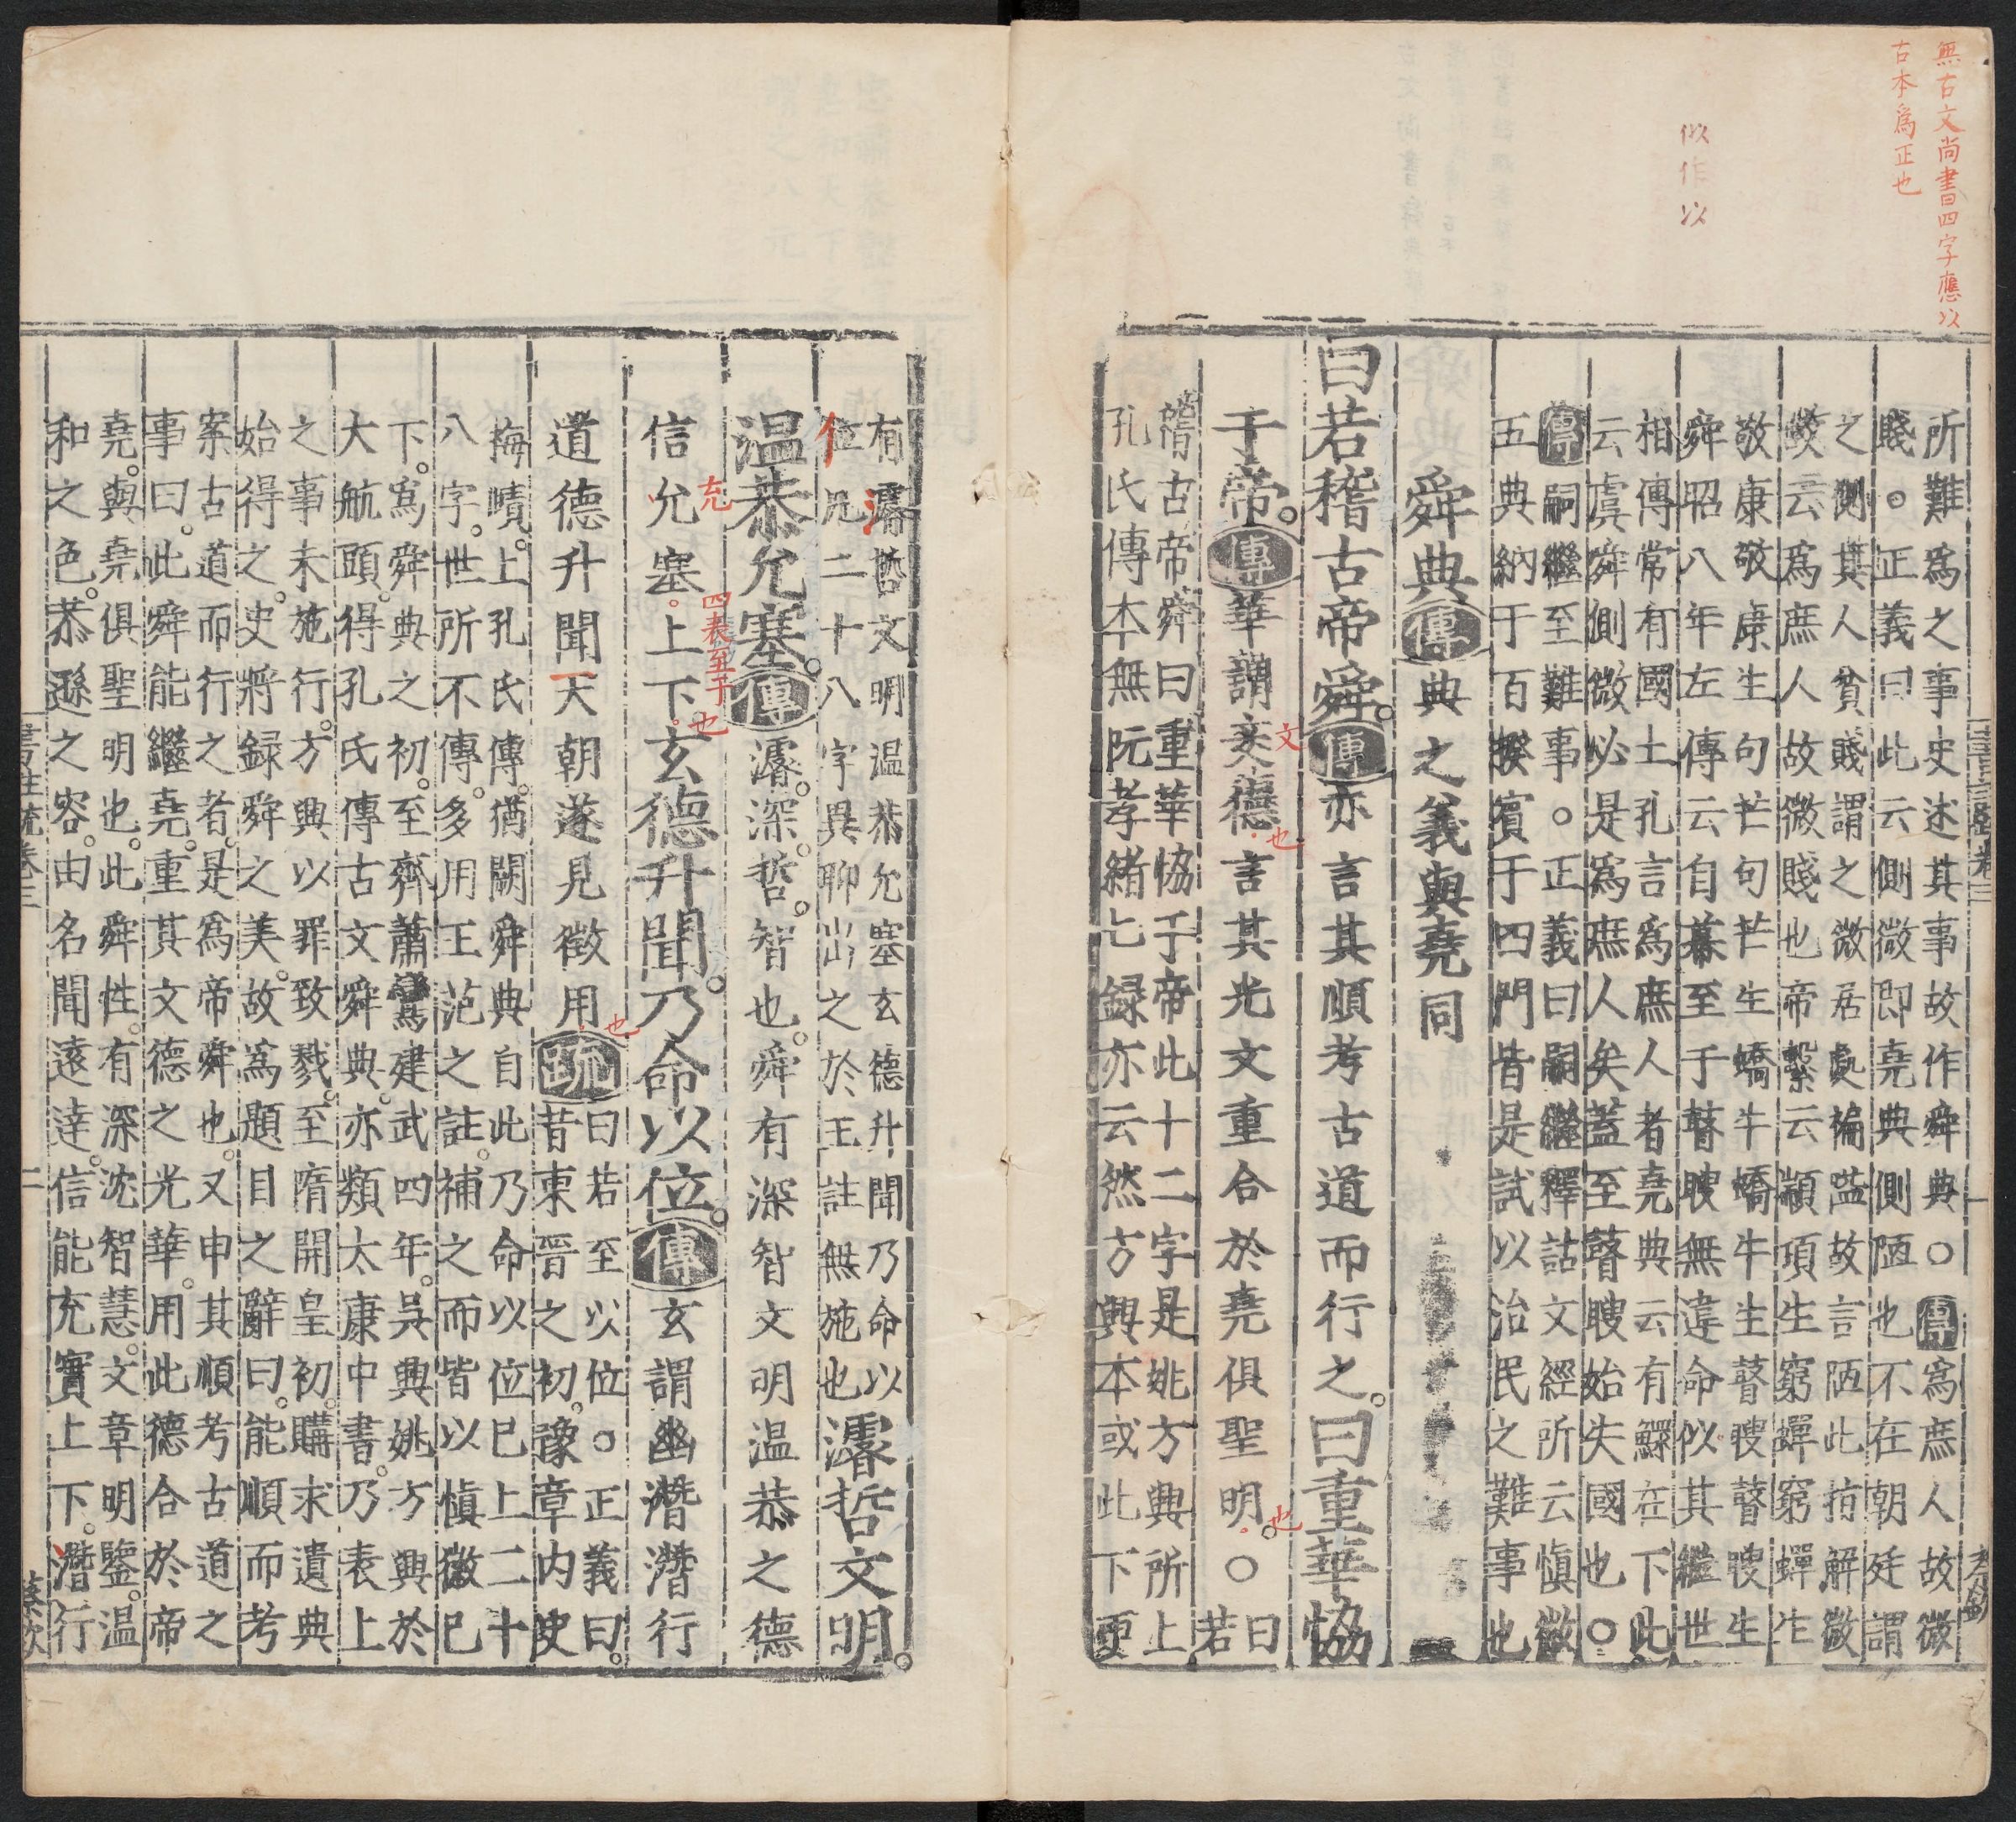 無古文尚書四字應以
古本為正也
似作以
所難爲之事史述其事故作舜典○傳爲庶人故微
賤。正義曰此云側微即堯典側陋也不在朝廷謂
之側其人貧賤謂之微居處褊隘故言陋此指解微
故云爲庶人故微賤也帝繫云顓頊生窮蟬窮蟬生
敬康敬康生句芒句芒生蟜牛蟜牛生瞽瞍瞽瞍生
舜昭八年左傳云自幕至于瞽瞍無違命似其繼世
相傳常有國土孔言爲庶人者堯典云有鰥在下此
云虞舜側微必是爲庶人矣蓋至瞽瞍始失國也○
傳嗣繼至難事。正義曰嗣繼釋詁文經所云慎徽
五典納于百揆賓于四門皆是試以治民之難事也
舜典傳典之義與堯同
曰若稽古帝舜。傳亦言其順考古道而行之。曰重華協
于帝。傳華謂文德言其光文重合於堯俱聖明。○曰若
文
也
也
稽古帝舜曰重華協于帝此十二字是姚方興所上
孔氏傳本無阮孝緒七録亦云然方興本或此下更
有濬哲文明温恭允塞玄德升聞乃命以
位凡二十八字異聊出之於王註無施也濬哲文明。
温恭允塞。傳濬。深。哲。智也。舜有深智文明温恭之德
充
四表至于
也
信允塞。上下。玄德升聞。乃命以位。傳玄謂幽潛潛行
道德升聞天朝遂見徵用疏曰若至以位。○正義曰。
也
昔東晉之初。豫章内史
梅賾。上孔氏傳。猶闕舜典自此乃命以位已上二十
八字。世所不傳。多用王范之註。補之而皆以慎徽已
下。爲舜典之初。至齊蕭鸞建武四年。吳興姚方興於
大航頭。得孔氏傳古文舜典。亦類太康中書。乃表上
之事未施行。方興以罪致戮。至隋開皇初。購求遺典
始得之。史將録舜之美。故爲題目之辭曰。能順而考
案古道而行之者。是爲帝舜也。又申其順考古道之
事曰。此舜能繼堯。重其文德之光華。用此德合於帝
堯。與堯俱聖明也。此舜性。有深沈智慧。文章明鑒。温
和之色。恭遜之容。由名聞遠達。信能充實上下。潛行
書註疏卷三
二